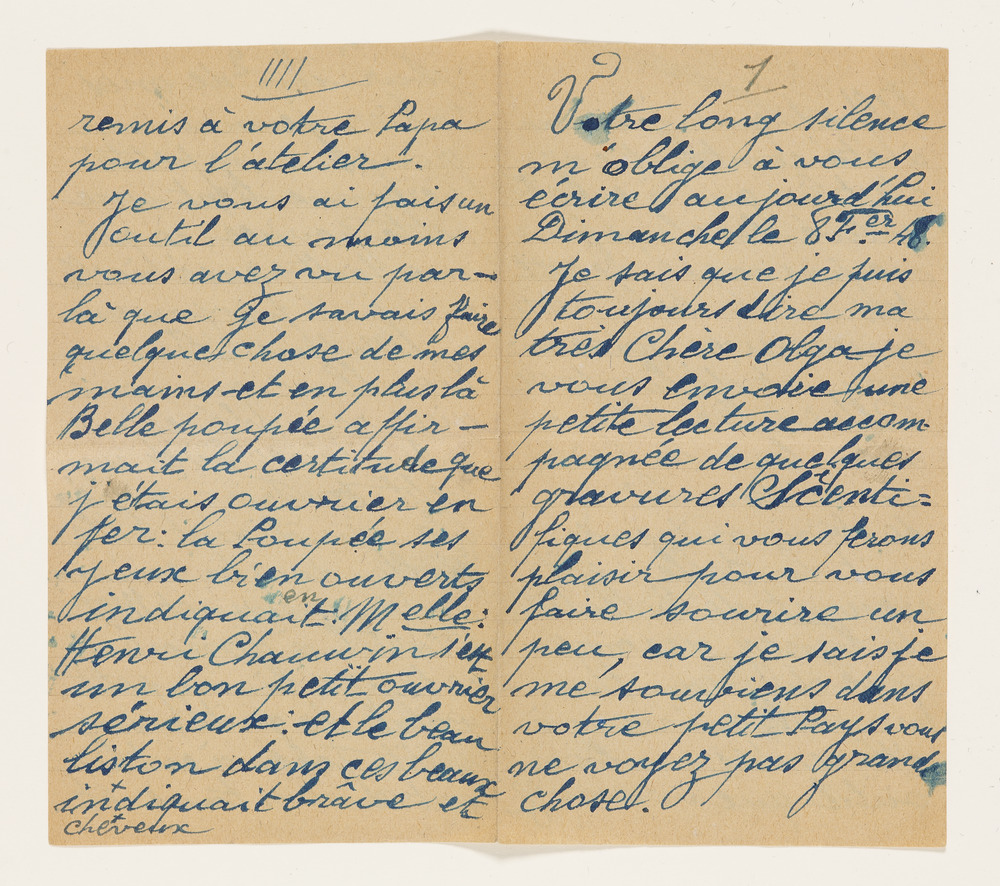 IIII
remis à votre Papa
pour l'atelier.
Je vous ai fais un
outil au moins
vous avez vu par-
là que Je savais faire
quelque chose de mes
mains et en plus là
Belle poupée affir-
mait la certitude que
j'étais ouvrier en
fer: la Poupée ses
yeux bien ouverts
en
indiquait: Melle:
Henri Chauvin s'est
un bon petit ouvrier
sérieux: et le beau
liston dans ces beaux
indiquait brâve et
cheveux
1
Votre long silence
m'oblige à vous
écrire aujourd'hui
Dimanche le 8 Fer 48.
Je sais que je puis
toujours dire ma
très Chère Olga je
vous envoie une
petite lecture accom-
pagnée de quelques
gravures Scienti=
fiques qui vous ferons
plaisir pour vous
faire sourire un
peu, car je sais je
me souviens dans
votre petit Pays vous
ne voyez pas grand
chose.